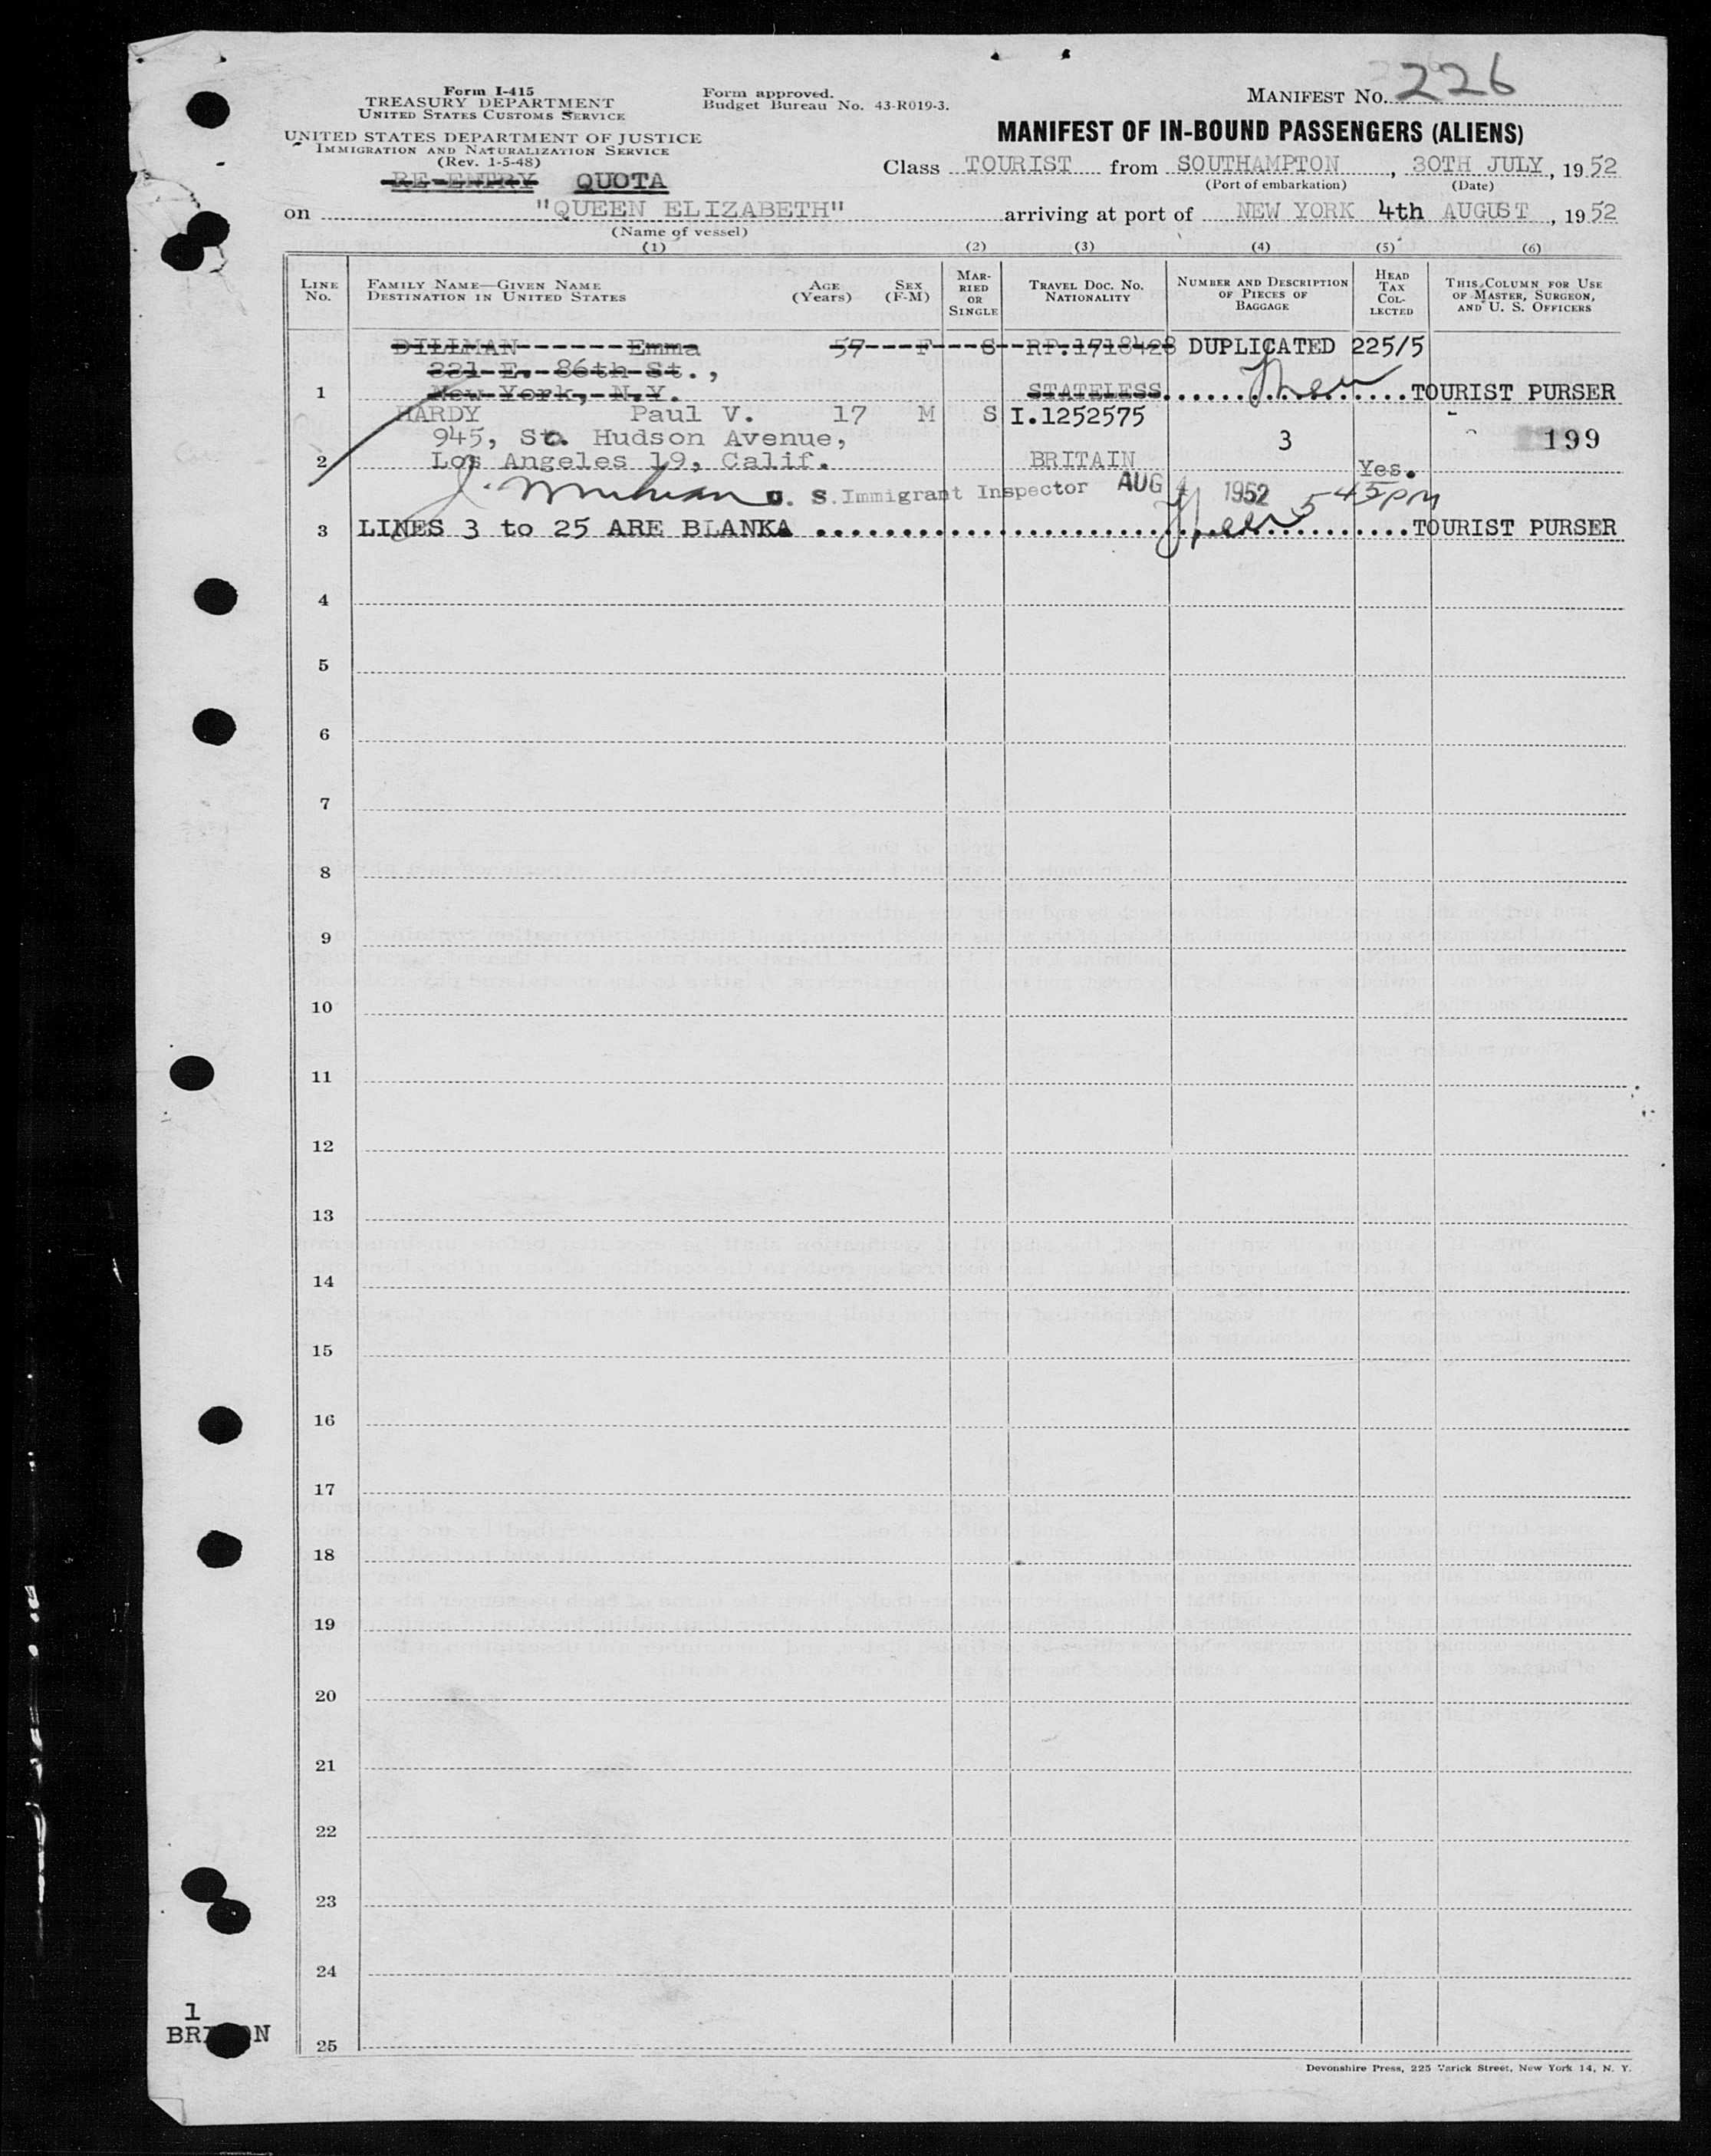 Form I-415
TREASURY DEPARTMENT
UNITED STATES CUSTOMS SERVICE
UNITED STATES DEPARTMENT OF JUSTICE
IMMIGRATION AND NATURALIZATION SERVICE
(Rev. 1-5-48)
RE-ENTRY QUOTA
Form approved.
Budget Bureau No. 43-R019-3.
MANIFEST NO. 226
MANIFEST OF IN-BOUND PASSENGERS (ALIENS)
Class TOURIST from SOUTHAMPTON, 30TH JULY, 1952
(Port of embarkation) (Date)
on "QUEEN ELIZABETH" arriving at port of NEW YORK 4th AUGUST, 1952
(Name of vessel)
(1) (2) (3) (4) (5) (6)
LINE No. FAMILY NAME—GIVEN NAME DESTINATION IN UNITED STATES AGE (Years) SEX (F-M) MARRIED OR SINGLE TRAVEL DOC. NO. NATIONALITY NUMBER AND DESCRIPTION OF PIECES OF BAGGAGE HEAD TAX COLLECTED THIS COLUMN FOR USE OF MASTER, SURGEON, AND U. S. OFFICERS
DILLMAN------Emma 57---F---S--RP.1718428 DUPLICATED 225/5
221-E.-86th-St.,
1 New-York,-N.Y. STATELESS.................TOURIST PURSER
HARDY Paul V. 17 M S I.1252575
945, So. Hudson Avenue, 3 199
2 Los Angeles 19, Calif. BRITAIN Yes.
U. S. Immigrant Inspector AUG 4 1952 5 45 PM
3 LINES 3 to 25 ARE BLANKA ............................TOURIST PURSER
4
5
6
7
8
9
10
11
12
13
14
15
16
17
18
19
20
21
22
23
24
25
1
BRI N
Devonshire Press, 225 Varick Street, New York 14, N. Y.